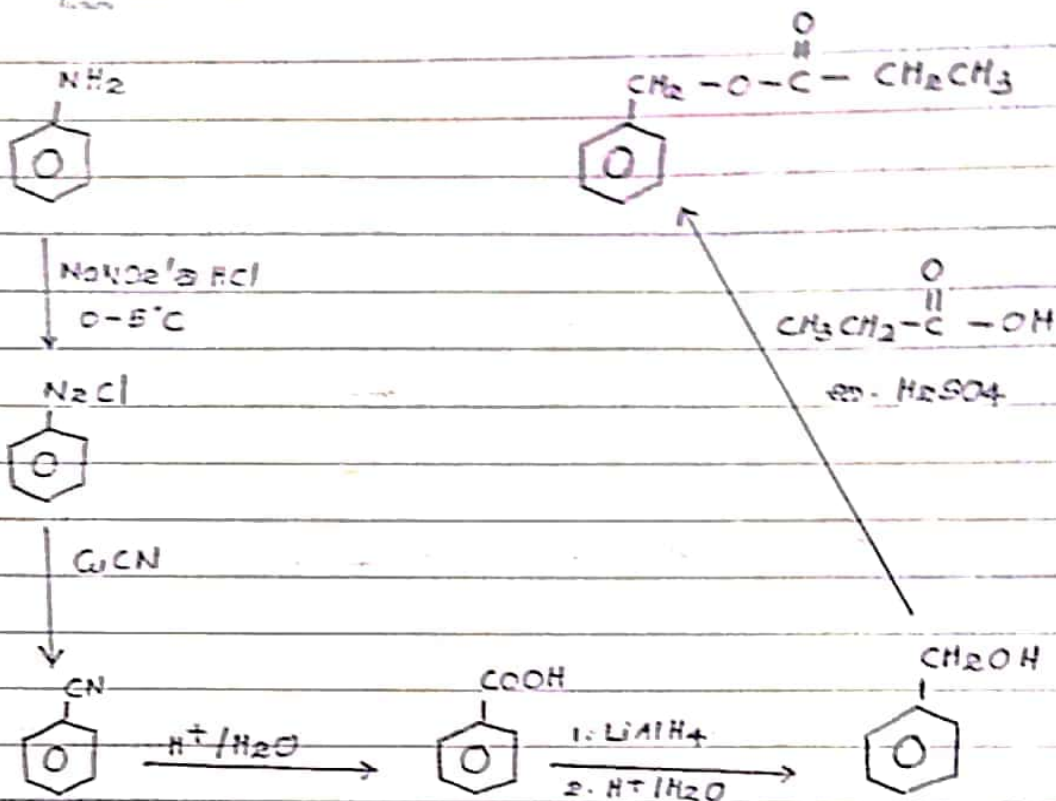 NH2
O
CH2 - O - C - CH2CH3
NaNO2 / HCl
0-5°C
O
CH3CH2-C - OH
H2SO4
N2Cl
CuCN
CN
H+/H2O
COOH
1. LiAlH4
2. H+/H2O
CH2OH